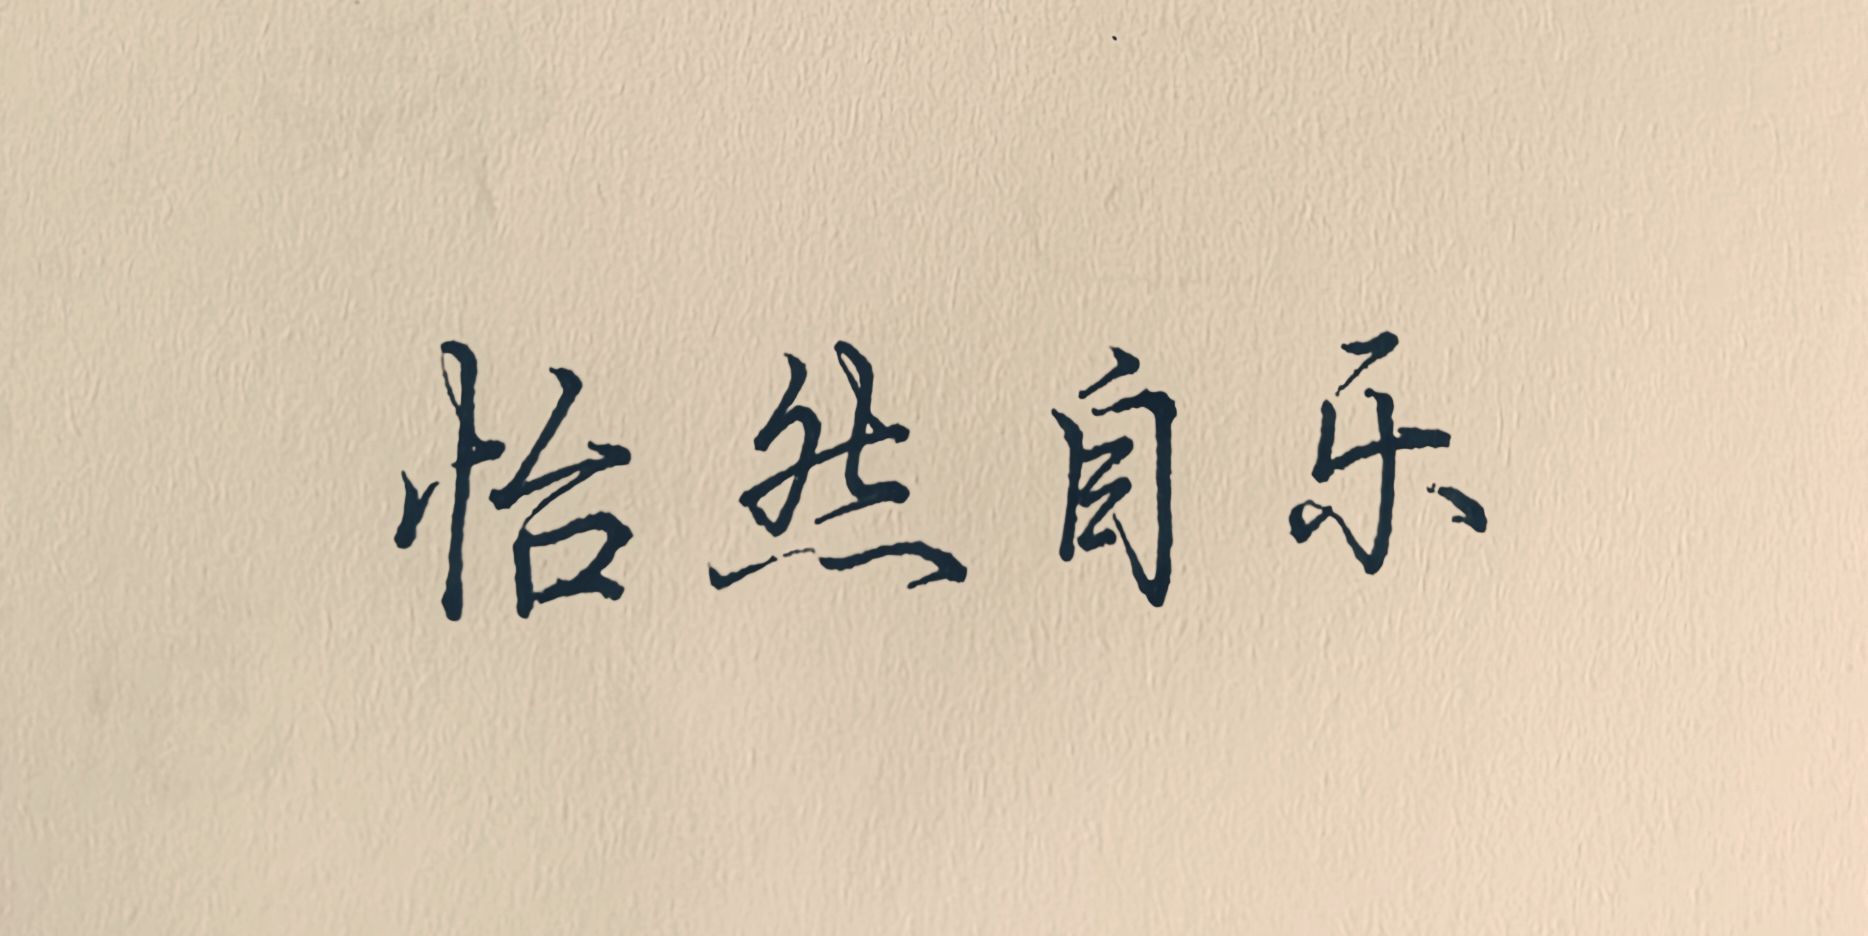 怡然自乐